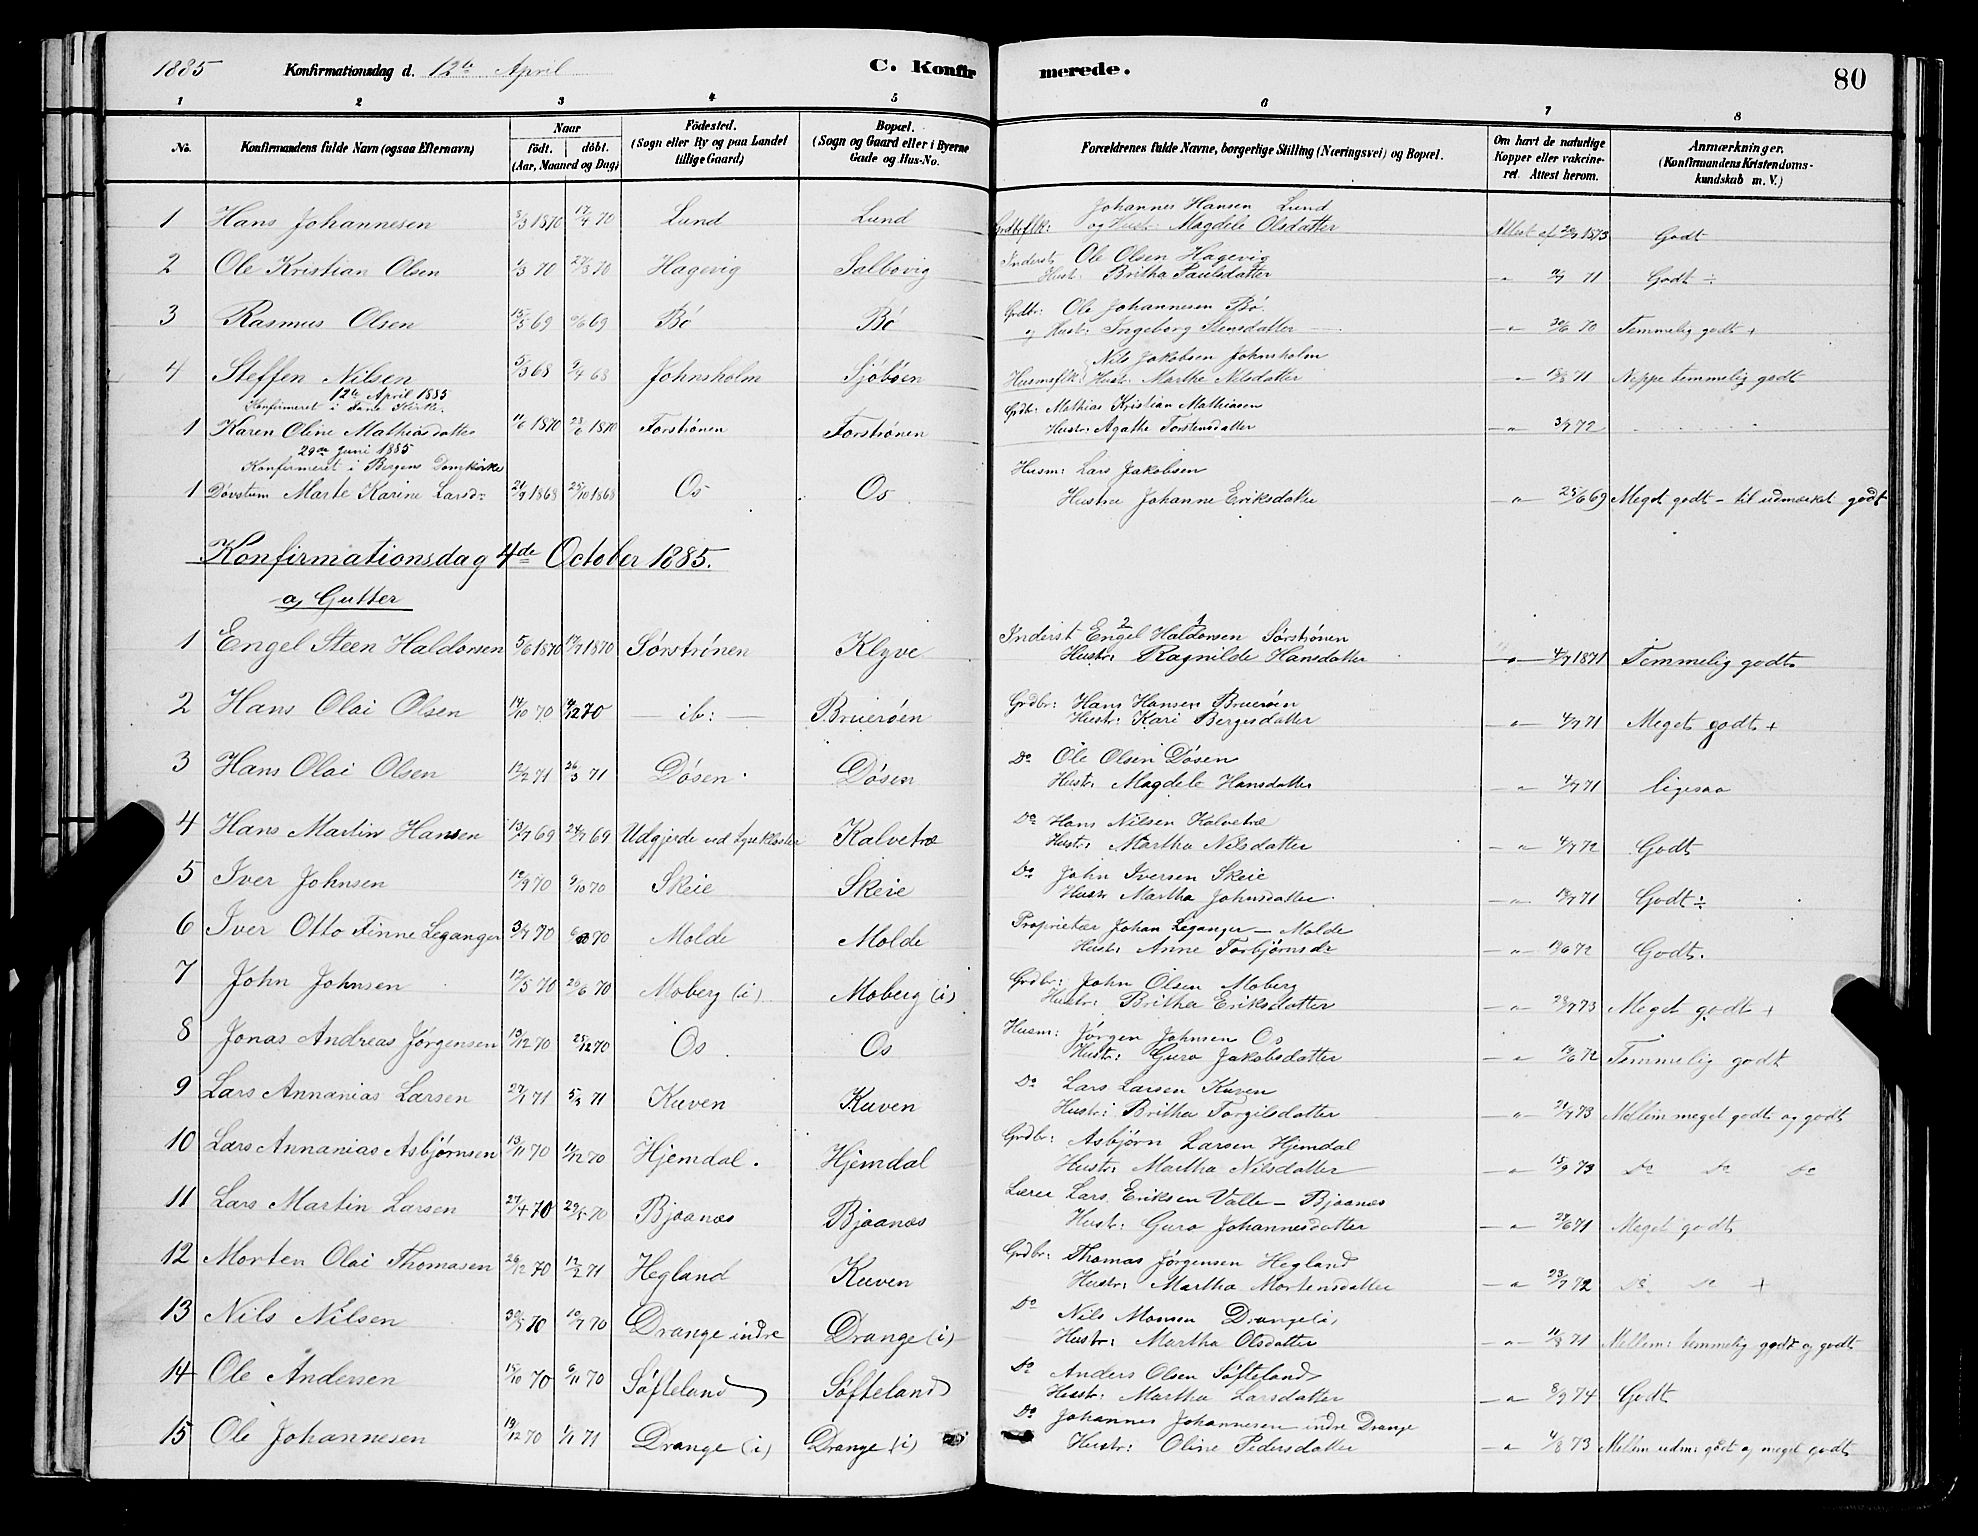 1885 Konfirmationsdag d. 12te April C. Konfirmerede. 80
1 2 3 4 5 6 7 8
No. Konfirmandens fulde Navn (ogsaa Efternavn) Naar födt. döbt. (Aar, Maaned og Dag) Födested. (Sogn eller By og paa Landet tillige Gaard) Bopæl. (Sogn og Gaard eller i Byerne Gade og Hus-No. Forældrenes fulde Navne, borgerlige Stilling (Næringsvei) og Bopæl. Om havt de naturlige Kopper eller vakcineret. Attest herom. Anmærkninger. (Konfirmandens Kristendomskundskab m. V.)
Johannes Hansen Lund
1 Hans Johannesen 3/3 1870 17/4 70 Lund Lund og Hust: Magdele Olsdatter Attest af 1873 Godt
Inderst Ole Olsen Hagevig
2 Ole Kristian Olsen 1/3 70 27/3 70 Hagevig Salbovig Hust: Britha Paulsdatter 71 Godt ÷
Grdbr: Ole Johannesen Bö
3 Rasmus Olsen 15/5 69 6/6 69 Bö Bö og Hust: Ingeborg Stensdatter 30/6 70 Temmelig godt +
Nils Jakobsen Johnsholm
4 Steffen Nilsen 5/3 68 9/4 68 Johnsholm Sjöböen Husmflk: Hust: Marthe Nilsdatter 71 Neppe temmelig godt
12te April 1885
Konfirmeret i Fane Kirke. Grdbr: Mathias Kristian Mathiasen
1 Karen Oline Mathiasdatter 11/6 1870 23/6 1870 Forströnen Forströnen Hustr: Agathe Torstensdatter 3/7 72
29de Juni 1885
Konfirmeret i Bergens Domkirke Husm: Lars Jakobsen
1 Døvstum Marte Karine Larsd: 21/9 1868 25/10 1868 Os Os Hustru Johanne Eriksdatter 25/6 69 Meget godt – til udmærket godt
Konfirmationsdag 4de October 1885.
a) Gutter
Inderst Engel Haldorsen Sørströnen
1 Engel Steen Haldorsen 5/6 1870 17/7 1870 Sørströnen Klyve Hustr: Ragnilde Hansdatter 4/7 1871 Temmelig godt
Grdbr: Hans Hansen Brueröen
2 Hans Olai Olsen 14/10 70 4/12 70 – ib: – Brueröen Hustr: Kari Bergesdatter 4/7 71 Meget godt +
Do Ole Olsen Dösen
3 Hans Olai Olsen 12/2 71 26/3 71 Dösen Dösen Hustr: Magdele Hansdatter 4/7 71 ligesaa
Do Hans Nilsen Kalvetræ
4 Hans Martin Hansen 13/7 69 24/7 69 Udgjerde ved Lysekloster Kalvetræ Hustr: Martha Nilsdatter 4/7 72 Godt
Do John Iversen Skeie
5 Iver Johnsen 12/9 70 9/10 70 Skeie Skeie Hustr Martha Johnsdatter 71 Godt ÷
Proprietær Johan Leganger – Molde
6 Iver Otto Finne Leganger 3/7 70 70 Molde Molde Hustr: Anne Torbjørnsdr 72 Godt.
Grdbr: John Olsen Moberg
7 John Johnsen 12/5 70 26/6 70 Moberg (i) Moberg (i) Hustr: Britha Eriksdatter 28/7 73 Meget godt +
Husm: Jørgen Johnsen Os
8 Jonas Andreas Jørgensen 13/12 70 25/12 70 Os Os Hustr: Guro Jakobsdatter 72 Temmelig godt
Do Lars Larsen Kuven
9 Lars Annanias Larsen 27/1 71 5/3 71 Kuven Kuven Hustr: Britha Torgilsdatter 21/7 73 Mellem meget godt og godt
Grdbr: Asbjørn Larsen Hjemdal
10 Lars Annanias Asbjørnsen 13/11 70 70 Hjemdal. Hjemdal Hustr: Martha Nilsdatter 15/9 73 do do do
Lærer Lars Eriksen Valle – Bjaanæs
11 Lars Martin Larsen 27/4 70 29/5 70 Bjaanæs Bjaanæs Hustr: Guro Johannesdatter 27/6 71 Meget godt
Grdbr: Thomas Jørgensen Hegland
12 Morten Olai Thomasen 26/12 70 12/2 71 Hegland Kuven Hustr: Martha Mortensdatter 23/7 72 do. do +
Do Nils Monsen Drange (i)
13 Nils Nilsen 30/5 70 10/7 70 Drange indre Drange (i) Hustr: Martha Olsdatter 71 Mellem: temmelig godt og godt
Do Anders Olsen Söfteland
14 Ole Andersen 15/10 70 6/11 70 Söfteland Söfteland Hustr: Martha Larsdatter 8/9 74 Godt
Do Johannes Johannesen indre Drange
15 Ole Johannesen 19/12 70 1/1 71 Drange (i) Drange (i) Hustr: Oline Pedersdatter 4/8 73 Mellem udm: godt og meget godt